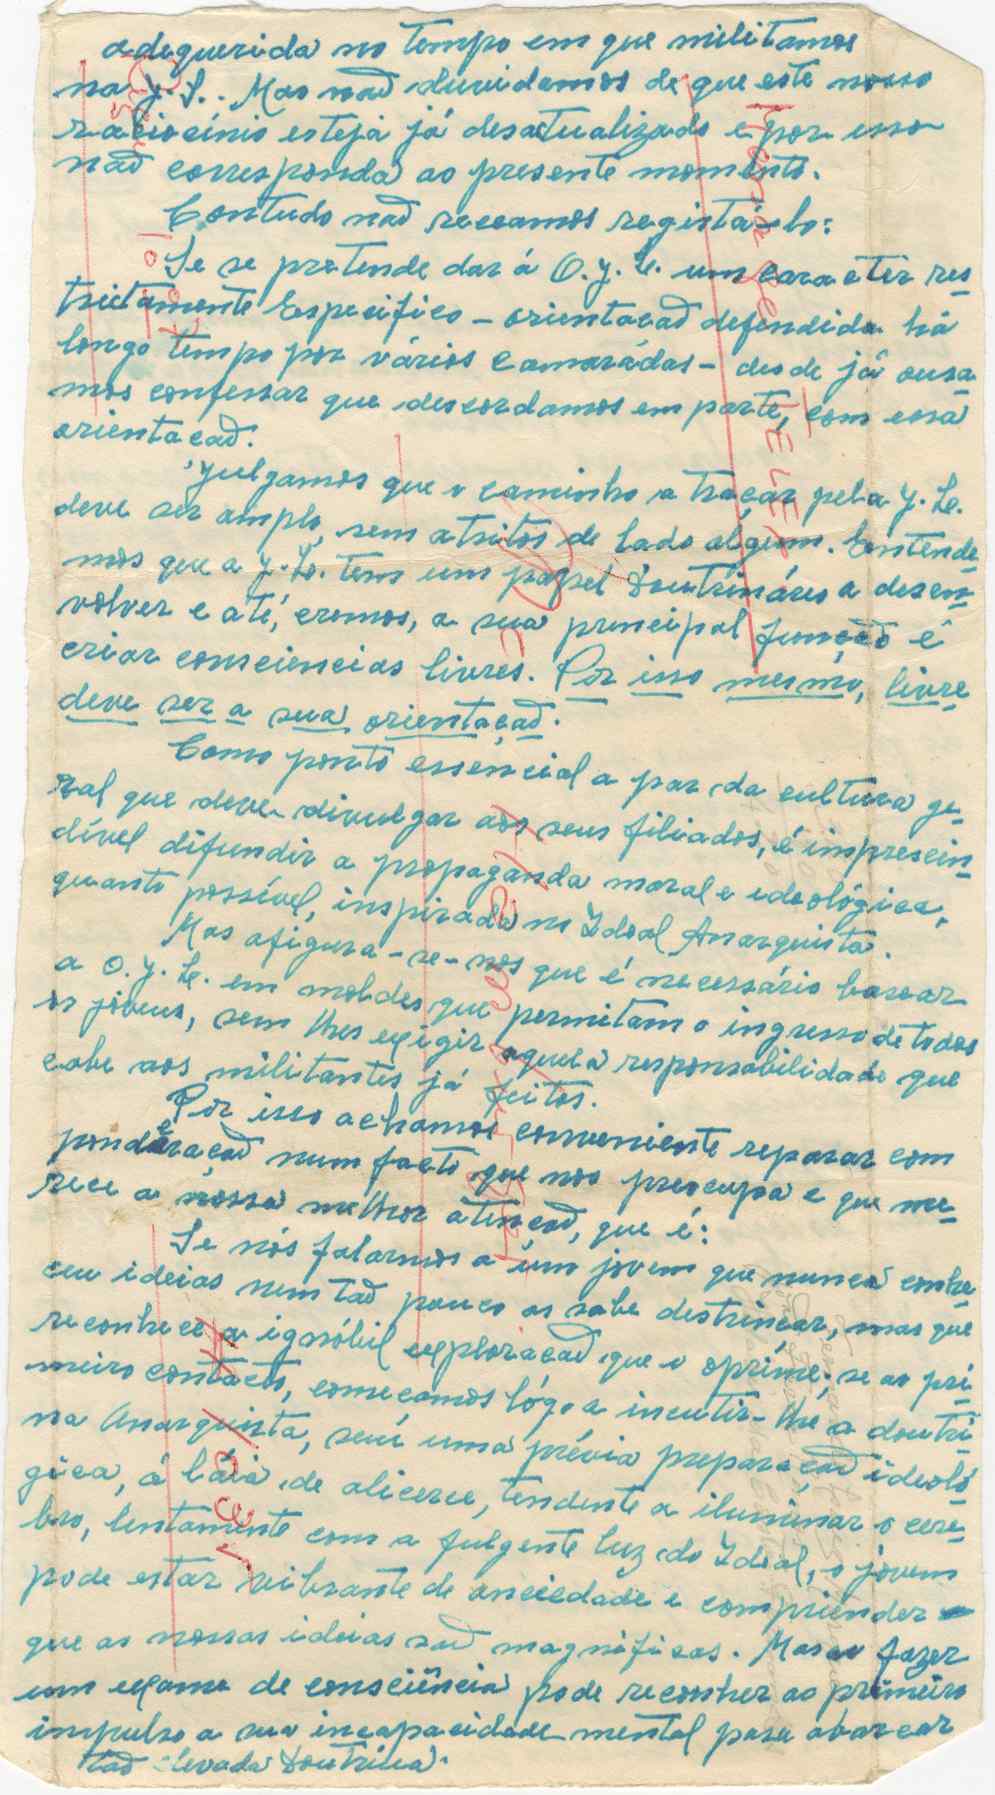 adequerida no tempo em que militamos
na J. L.. Mas naõ duvidamos de que este nosso
raciocínio esteja já desactualizado e por isso
naõ corresponda ao presente momento.
Contudo naõ receamos registá-lo:
Se se pretende dar á O. J. L. um caracter res-
trictamente Especifico - orientacaõ defendida há
longo tempo por vários camarádas - desde já ousa-
mos confessar que descordamos em parte, com essa
orientacaõ.
Julgamos que o caminho a traçar pela J. L.
deve ser amplo, sem atritos de lado algum. Entende-
mos que a J. L. tem um papel Doutrinário a desen-
volver e até, cremos, a sua principal função é
criar consciencias livres. Por isso mesmo, livre
deve ser a sua orientaçaõ.
Como ponto essencial a par da cultura ge-
ral que deve divulgar aos seus filiados, é imprescin-
dível difundir a propaganda moral e ideológica,
quanto possível, inspirada no Ideal Anarquista.
Mas afigura-se-nos que é necessário basear
a O. J. L. em moldes que permitam o ingresso de todos
os jovens, sem lhes exigir aquela responsabilidade que
cabe aos militantes já feitos.
Por isso achamos conveniente reparar com
ponderaçaõ num facto que nos preocupa e que me-
rece a nossa melhor atençaõ, que é:
Se nós falarmos a um jovem que nunca conhe-
ceu ideias nem taõ pouco as sabe destrinçar, mas que
reconhece a ignóbil exploracaõ que o oprime; se ao pri-
meiro contacto, começamos lógo a incutir-lhe a doutri-
na Anarquista, sem uma prévia preparacaõ ideoló-
gica, á láia de alicerce, tendente a iluminar o cere-
bro, lentamente com a fulgente luz do Ideal, o jovem
pode estar vibrante de anciedade e compriender
que as nossas ideias saõ magnificas. Mas ao fazer
um exame de consciência pode reconher ao primeiro
impulso a sua incapacidade mental para abarcar
taõ elevada Doutrina.